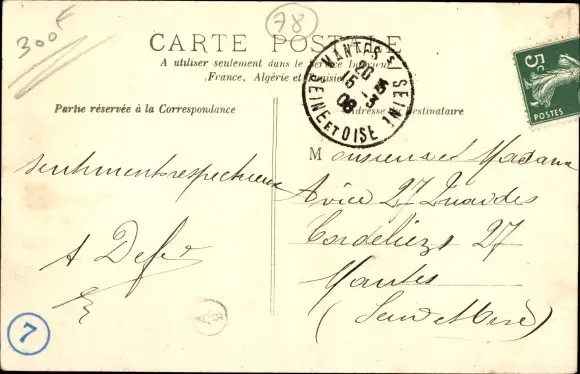 300F
78
CARTE POSTALE
A utiliser seulement dans le Service Intérieur
France, Algérie et Tunisie
Partie réservée à la Correspondance
Adresse du Destinataire
MANTES S/ SEINE
SEINE ET OISE
20
15 - 1
08
5c
POSTES
sentiments respectueux
A Defer
Monsieur et Madame
Avice 27
Cordeliers 27
Mantes
(Seine et Oise)
7